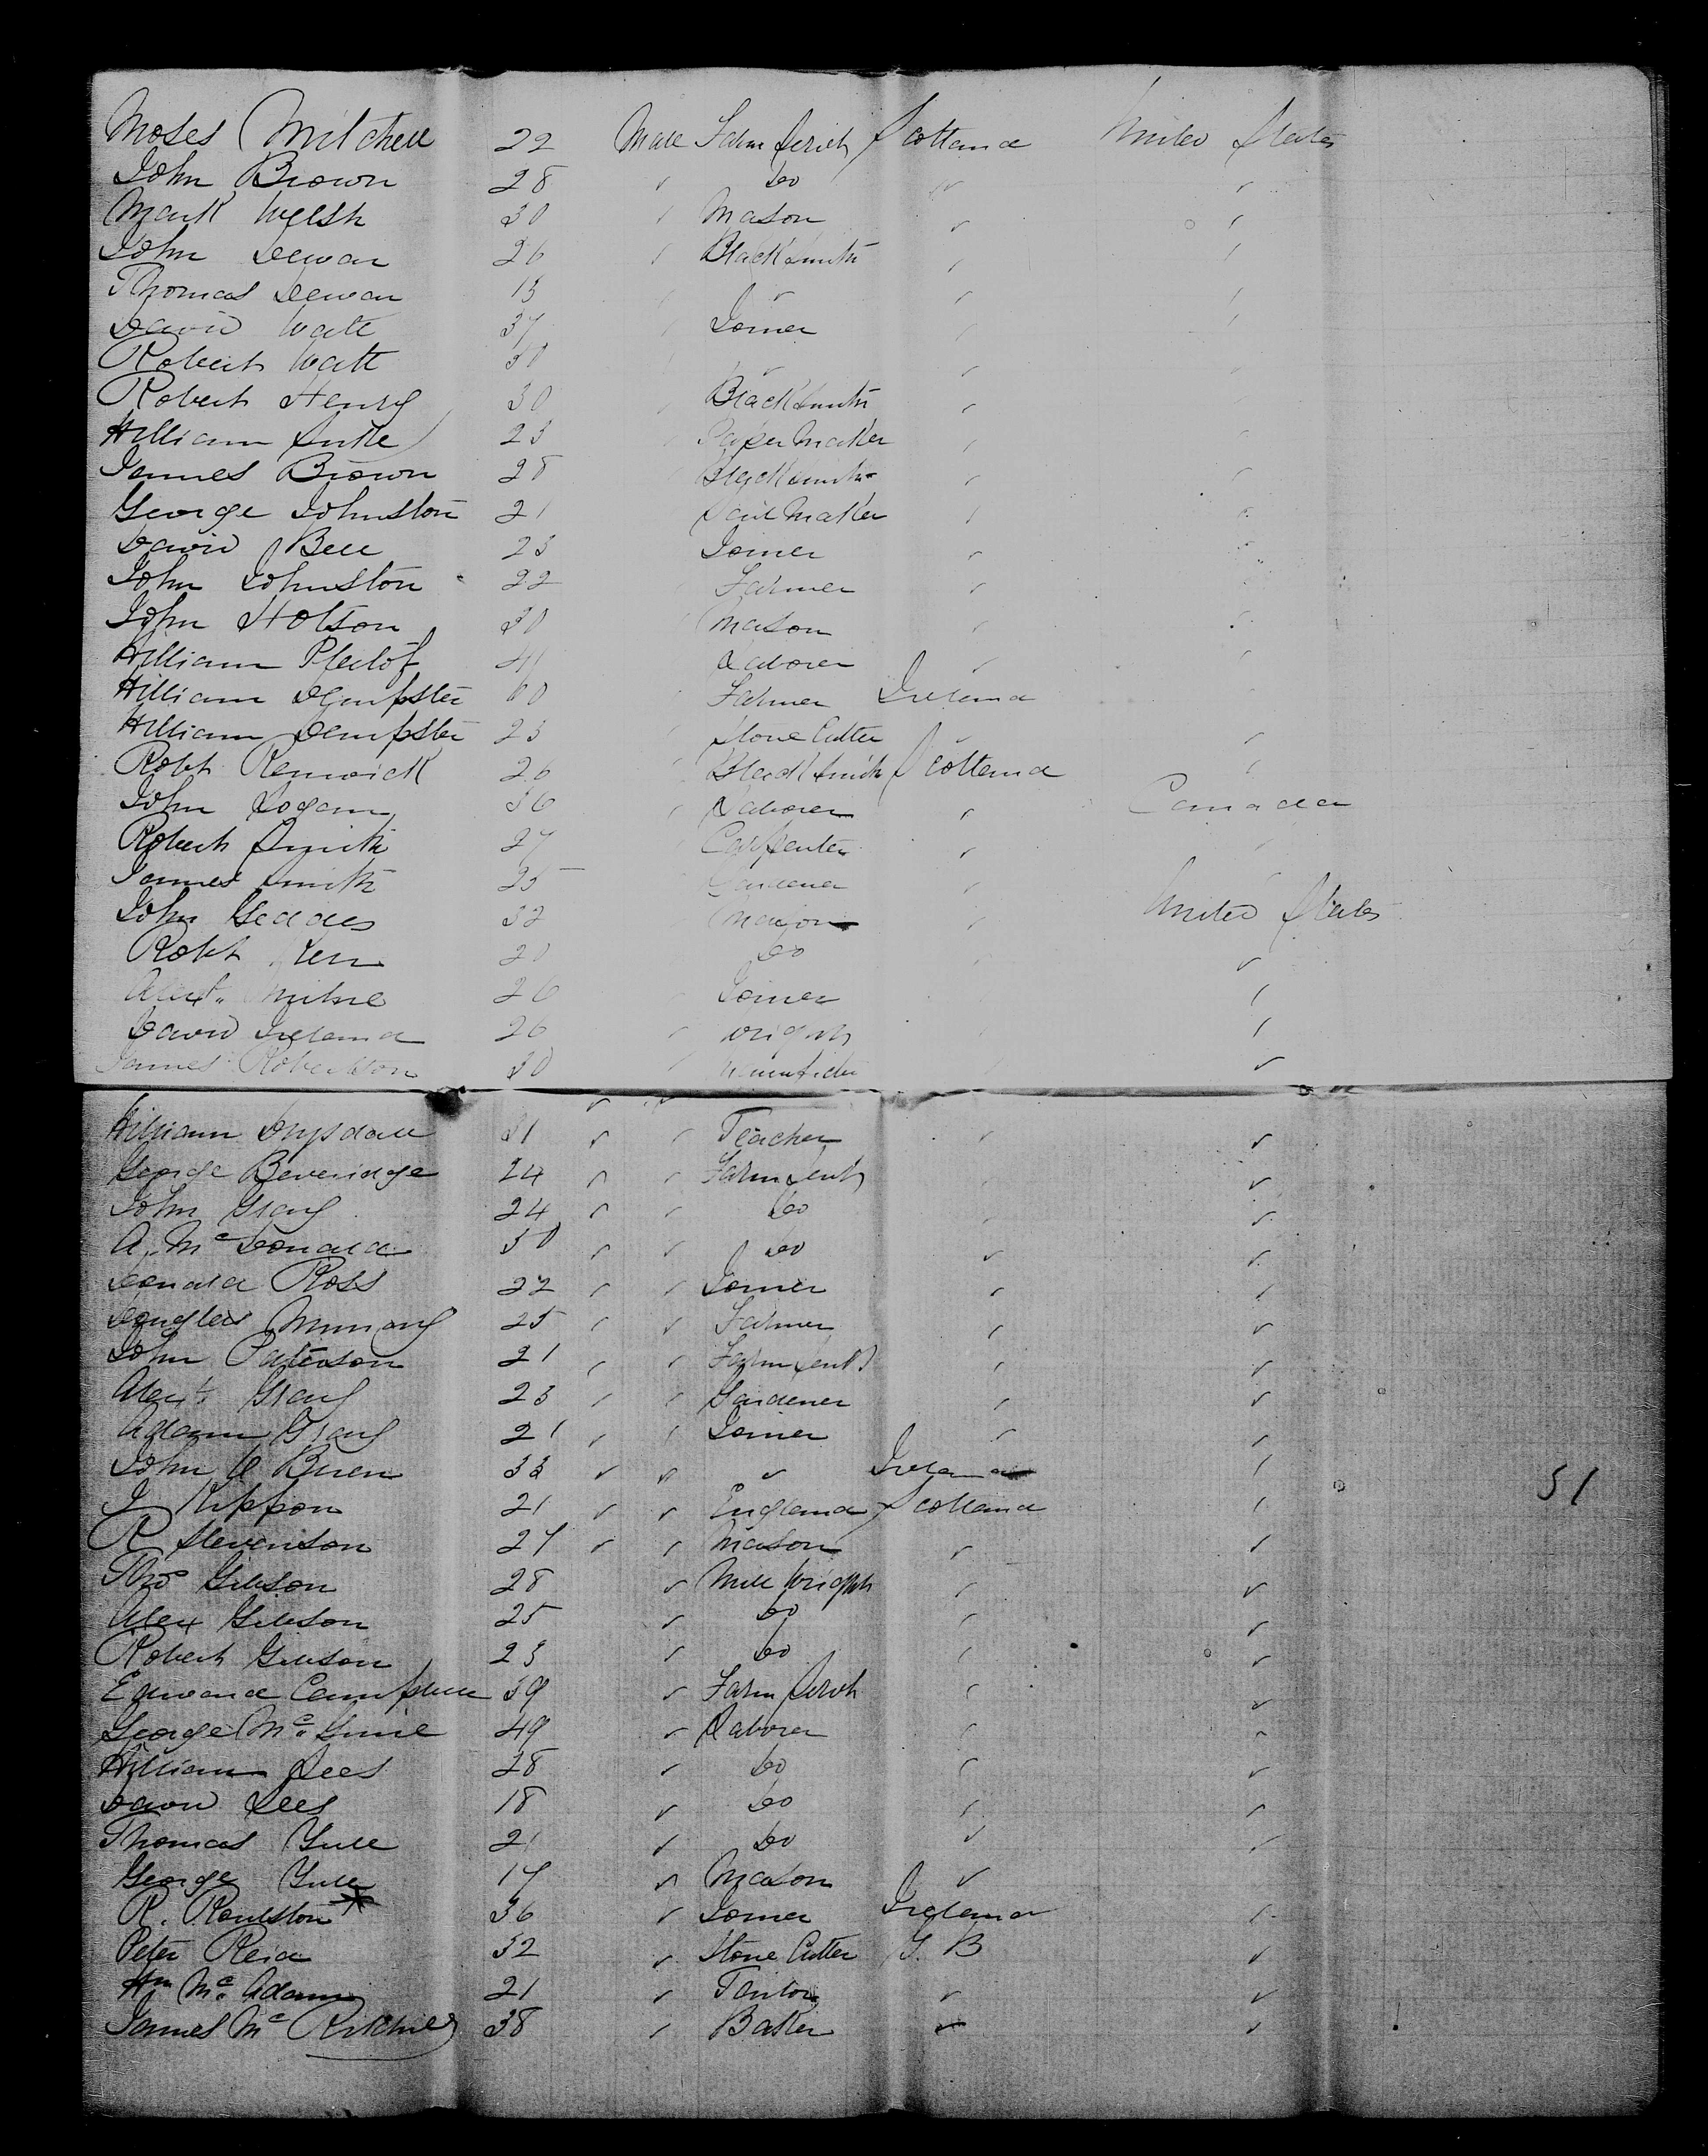 Moses Mitchell 22 Male Farm Servt Scotland United States
John Brown 28 " Do " "
Mark Welsh 30 " Mason " "
John Dewar 26 " Blacksmith " "
Thomas Dewar 13 " " " "
David Watt 37 " Joiner " "
Robert Watt 30 " " " "
Robert Henry 30 " Blacksmith "
William 23 " Paper Maker " "
James Brown 28 " Blacksmith " "
George Johnston 21 Sail Maker " "
David Bell 23 Joiner " "
John Johnston 22 " Farmer " "
John Hotson 30 " Mason " "
William 41 Laborer " "
William Dempster 60 " Farmer Ireland "
William Dempster 23 " Stone Cutter " "
Robt Renwick 26 " Blacksmith Scotland "
John Logan 36 " Laborer " Canada
Robert Smith 27 " Carpenter " "
James Smith 25 Gardener " "
John Geddes 32 Mason " United States
Robt Kerr 20 Do " "
Alexr. Milne 26 " Joiner "
David Ireland 26 " Wright "
James Robertson 30 " "
William Drysdall 31 " " Teacher " "
George Beveridge 24 " " Farm Servt " "
John Gray 24 " " Do " "
A. McDonald 30 " " Do " "
Donald Ross 22 " " Joiner " "
Douglas Murray 25 " " Farmer " "
John Paterson 21 " " Farm Servt " "
Alexr Gray 23 " " Gardener " "
Adam Gray 21 " " Joiner " "
John O Buen 33 " " " Ireland "
J Kippon 21 " " England Scotland "
51
R Stevenson 27 " " Mason " "
Thos Gibson 28 " Mill Wright " "
Alex Gibson 25 " Do " "
Robert Gibson 23 " Do " "
Edward Campbell 39 " Farm Servt " "
George Mc 49 " Laborer " "
William Lees 28 " Do " "
David Lees 18 " Do " "
Thomas Yule 21 " Do " "
George Yule 17 " Mason "
R. Roulston * 36 " Joiner Ireland "
Peter Reid 32 " Stone Cutter G. B "
Wm McAdam 21 " Tailor " "
James McRitchie 38 " Baker " "